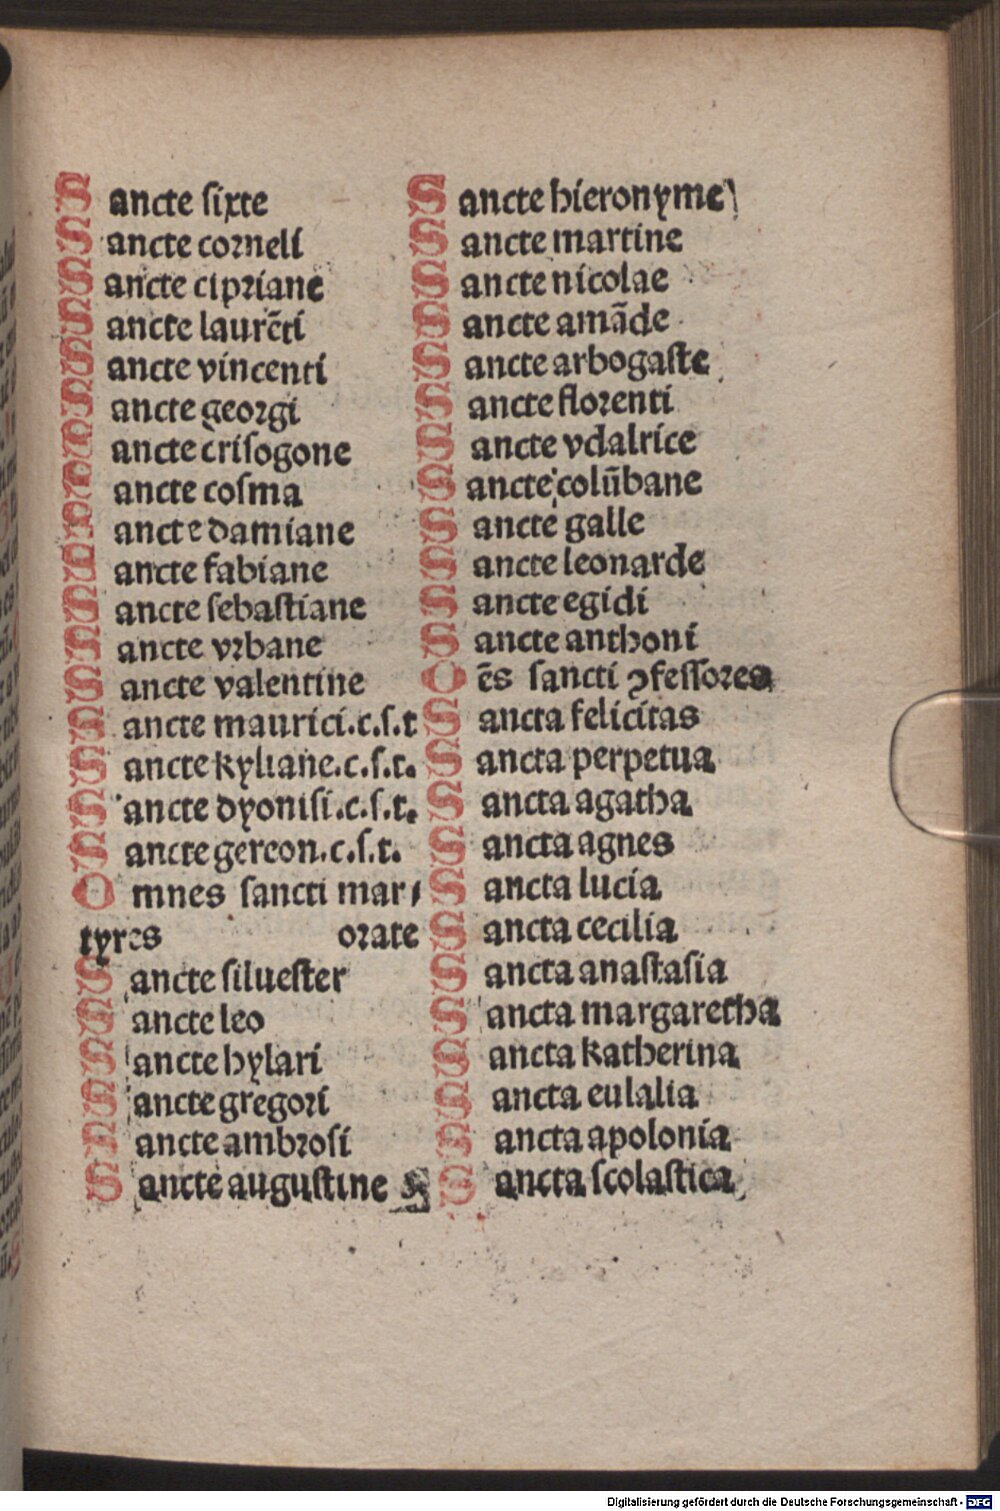 Sancte sixte
Sancte corneli
Sancte cipriane
Sancte laurēti
Sancte vincenti
Sancte georgi
Sancte crisogone
Sancte cosma
Sancte damiane
Sancte fabiane
Sancte sebastiane
Sancte vrbane
Sancte valentine
Sancte maurici.c.s.t
Sancte kyliane.c.s.t.
Sancte dyonisi.c.s.t.
Sancte gereon.c.s.t.
Omnes sancti mar/
tyres orate
Sancte siluester
Sancte leo
Sancte hylari
Sancte gregori
Sancte ambrosi
Sancte augustine
Sancte hieronyme
Sancte martine
Sancte nicolae
Sancte amāde
Sancte arbogaste
Sancte florenti
Sancte vdalrice
Sancte colūbane
Sancte galle
Sancte leonarde
Sancte egidi
Sancte anthoni
Oēs sancti ꝯfessores
Sancta felicitas
Sancta perpetua
Sancta agatha
Sancta agnes
Sancta lucia
Sancta cecilia
Sancta anastasia
Sancta margaretha
Sancta katherina
Sancta eulalia
Sancta apolonia
Sancta scolastica
Digitalisierung gefördert durch die Deutsche Forschungsgemeinschaft - DFG